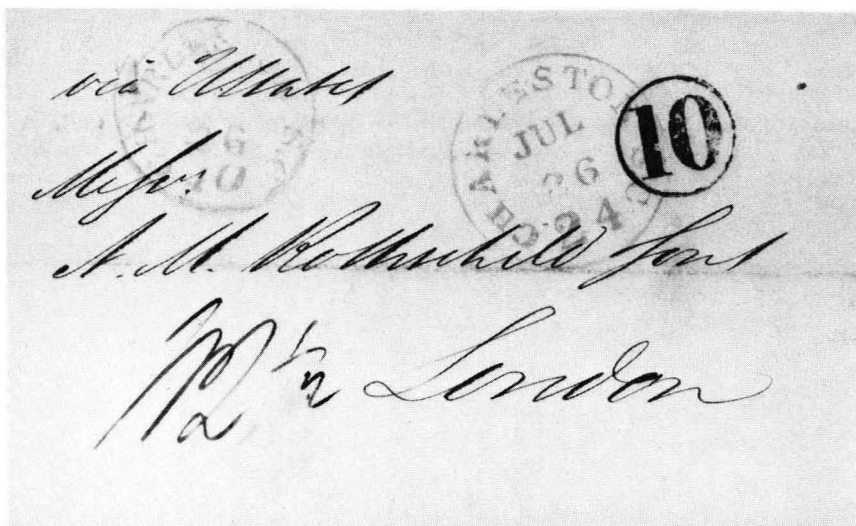 via
CHARLESTON
JUL
26
24
10
10
Messrs
N. M. Rothschild Sons
1/2 London